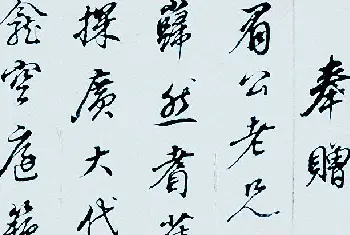 奉贈
眉公老兄
巋然耆
探廣大代
龕空庭